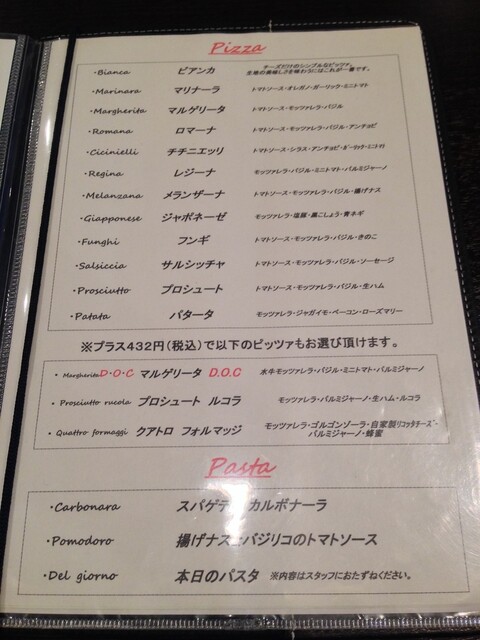 Pizza
・Bianca ビアンカ チーズだけのシンプルなピッツァ。
生地の美味しさを味わうにはこれが一番です。
・Marinara マリナーラ トマトソース・オレガノ・ガーリック・ミニトマト
・Margherita マルゲリータ トマトソース・モッツァレラ・バジル
・Romana ロマーナ トマトソース・モッツァレラ・バジル・アンチョビ
・Cicinielli チチニエッリ トマトソース・シラス・アンチョビ・ガーリック・ミニトマト
・Regina レジーナ モッツァレラ・バジル・ミニトマト・パルミジャーノ
・Melanzana メランザーナ トマトソース・モッツァレラ・バジル・揚げナス
・Giapponese ジャポネーゼ モッツァレラ・塩豚・黒こしょう・青ネギ
・Funghi フンギ トマトソース・モッツァレラ・バジル・きのこ
・Salsiccia サルシッチャ トマトソース・モッツァレラ・バジル・ソーセージ
・Prosciutto プロシュート トマトソース・モッツァレラ・バジル・生ハム
・Patata パタータ モッツァレラ・ジャガイモ・ベーコン・ローズマリー
※プラス432円(税込)で以下のピッツァもお選び頂けます。
・Margherita D・O・C マルゲリータ D.O.C 水牛モッツァレラ・バジル・ミニトマト・パルミジャーノ
・Prosciutto rucola プロシュート ルコラ モッツァレラ・パルミジャーノ・生ハム・ルコラ
・Quattro formaggi クアトロ フォルマッジ モッツァレラ・ゴルゴンゾーラ・自家製リコッタチーズ・
パルミジャーノ・蜂蜜
Pasta
・Carbonara スパゲティ カルボナーラ
・Pomodoro 揚げナスとバジリコのトマトソース
・Del giorno 本日のパスタ ※内容はスタッフにおたずねください。